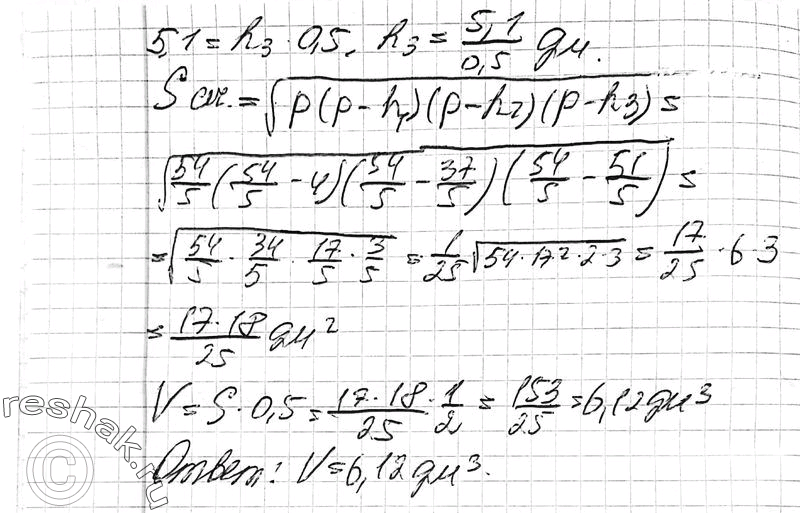 5,1 = h₃ · 0,5, h₃ = 5,1/0,5 дм.
S сеч. = √(p(p - h₁)(p - h₂)(p - h₃)) =
√(54/5 (54/5 - 4)(54/5 - 37/5)(54/5 - 51/5)) =
= √(54/5 · 34/5 · 17/5 · 3/5) = 1/25 √(54 · 17² · 2 · 3) = 17/25 · 6 · 3
= 17·18/25 дм²
V = S · 0,5 = 17·18/25 · 1/2 = 153/25 = 6,12 дм³
Ответ: V = 6,12 дм³.
© reshak.ru